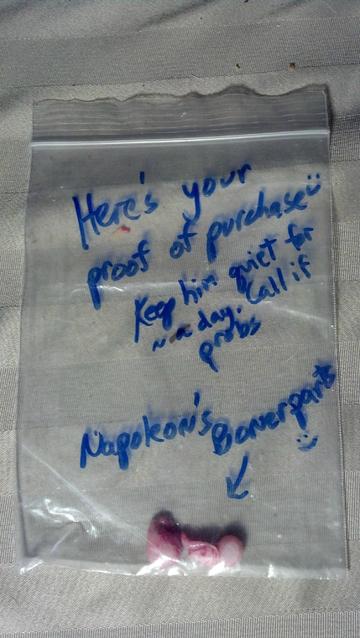 Here's your
proof of purchase
Keep him quiet for
~ a day. Call if
probs
Napoleon's Bonerparts